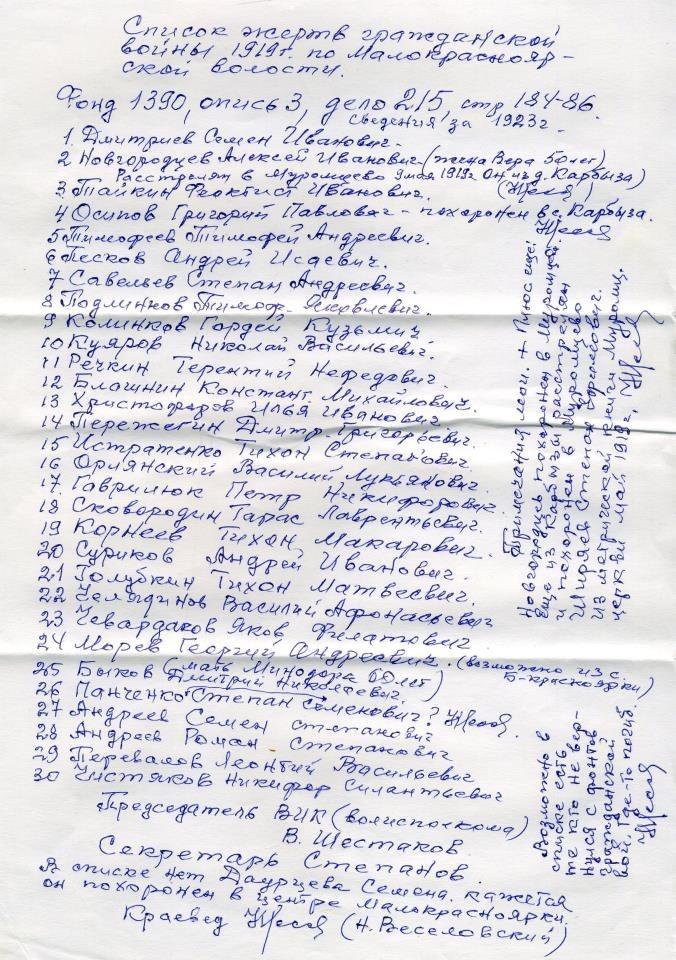 Список жертв гражданской
войны 1919г. по Малокраснояр-
ской волости.
Фонд 1390, опись 3, дело 215, стр 184-86.
сведения за 1923г.
1. Дмитриев Семен Иванович.
2 Новгородцев Алексей Иванович (жена Вера 50 лет)
Расстрелян в Муромцево 9 мая 1919г. Он из д. Карбыза)
3. Тайкин Феоктист Иванович.
4 Осипов Григорий Павлович - похоронен в с. Карбыза.
5 Тимофеев Тимофей Андреевич.
6 Песков Андрей Исаевич.
7 Савельев Степан Андреевич.
8 Подлинков Тимоф. Яковлевич.
9 Колинков Гордей Кузьмич
10 Куяров Николай Васильевич.
11 Речкин Терентий Нефедович.
12 Блашнин Констант Михайлович.
13 Христофоров Илья Иванович
14 Пережегин Дмитр. Григорьевич.
15 Истратенко Тихон Степанович.
16 Орлянский Василий Лукьянович.
17. Гаврилюк Петр Никифорович.
18 Сковородин Тарас Лаврентьевич.
19 Корнеев Тихон Макарович.
20 Суриков Андрей Иванович.
21 Голубкин Тихон Матвеевич.
22 Челядинов Василий Афонасьевич
23 Чевардаков Яков Филатович
24 Морев Георгий Андреевич. (возможно из с. Б-красноярки)
25 Быков Дмитрий Николаевич. (мать Минодора 60 лет)
26 Панченко Степан Семенович?
27 Андреев Семен степанович
28 Андреев Роман Степанович
29 Перевалов Леонтий Васильевич
30 Чистяков Никифор Силантьевич
Председатель ВИК (волисполкома)
В. Шестаков.
Секретарь Степанов.
В списке нет Даурцева Семена. кажется
он похоронен в центре Малокрасноярки.
Краевед (Н. Веселовский)
Примечания мои. + Плюс еще:
Новгородцев похоронен в Муромцево.
Еще из Карбызы расстрелян
и похоронен в Муромцево
Ширяев Степан Борисович.
Из метрической книги Муромц.
церкви май 1919г.
Возможно в
списке есть
те кто не вер-
нулся с фронтов
гражданской
вой. где-то погиб.